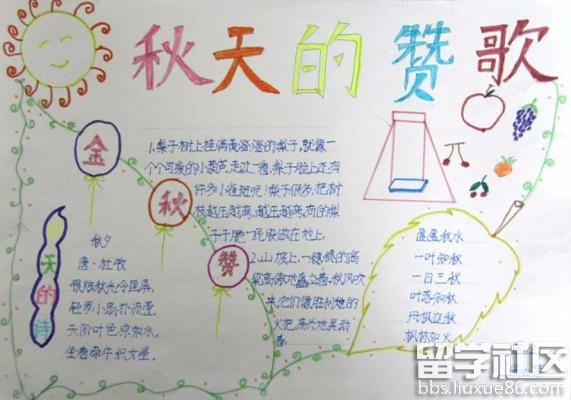 秋天的赞歌
金
秋
赞
1.梨子树上挂满黄澄澄的梨子,就像一
个个可爱的小葫芦,走近一看,梨子脸上还有
许多小雀斑呢!梨子很多,把树
枝越压越弯,越压越弯,有的梨
2.山坡上,一棵棵的高
粱高傲地直立着,秋风吹
来,它们像胜利地的
火把,高兴地晃动
着
天的诗
秋夕
唐·杜牧
银烛秋光冷画屏,
轻罗小扇扑流萤,
天阶叶色凉如水,
坐看牵牛织女星。
盈盈秋水
一叶知秋
一日三秋
叶落知秋
丹枫迎秋
枫林如火
留学社区
bbs.liuxue86.com